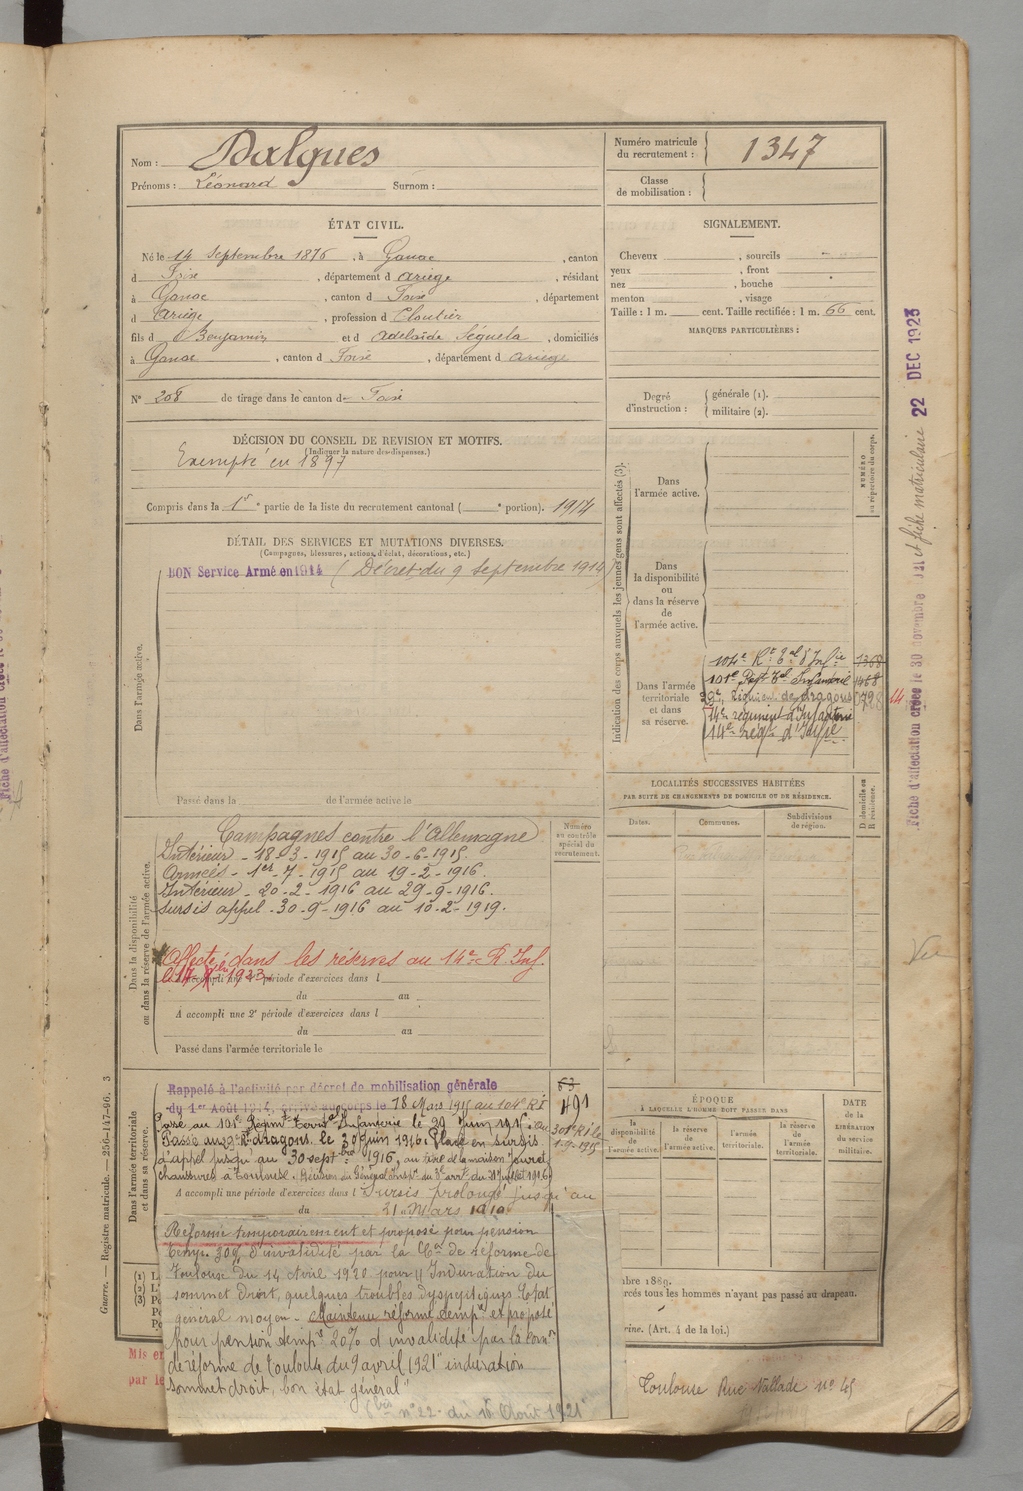 Nom : Dalgues
Prénoms : Léonard Surnom :
Numéro matricule du recrutement : 1347
Classe de mobilisation :
ÉTAT CIVIL.
Né le 14 Septembre 1876, à Ganac, canton
d Foix, département d Ariège, résidant
à Ganac, canton d Foix, département
d Ariège, profession d Cloutier
fils d Benjamin et d Adelaïde Séguela, domiciliés
à Ganac, canton d Foix, département d Ariège
N° 208 de tirage dans le canton d Foix
SIGNALEMENT.
Cheveux , sourcils
yeux , front
nez , bouche
menton , visage
Taille : 1 m. cent. Taille rectifiée : 1 m. 66 cent.
MARQUES PARTICULIÈRES :
Degré d'instruction : générale (1).
militaire (2).
DÉCISION DU CONSEIL DE REVISION ET MOTIFS.
(Indiquer la nature des dispenses.)
Exempté en 1897
Compris dans la 1re partie de la liste du recrutement cantonal ( e portion). 1914
DÉTAIL DES SERVICES ET MUTATIONS DIVERSES.
(Campagnes, blessures, actions d'éclat, décorations, etc.)
BON Service Armé en 1914 (Décret du 9 Septembre 1914)
Dans l'armée active.
Passé dans la de l'armée active le
Indication des corps auxquels les jeunes gens sont affectés (3).
NUMÉRO au répertoire du corps.
Dans l'armée active.
Dans la disponibilité ou dans la réserve de l'armée active.
Dans l'armée territoriale et dans sa réserve.
104e Rt Tal d'Infie 1368
101e Regt Tal Infanterie 1468
Régiment de dragons 0728
14e régiment d'Infanterie
14e régt d'Infie
LOCALITÉS SUCCESSIVES HABITÉES
PAR SUITE DE CHANGEMENTS DE DOMICILE OU DE RÉSIDENCE.
Dates. Communes. Subdivisions de région. D domicile ou R résidence.
Dans la disponibilité ou dans la réserve de l'armée active.
Numéro au contrôle spécial du recrutement.
Campagnes contre l'Allemagne
Intérieur - 18-3-1915 au 30-6-1915.
Armées - 1er-7-1915 au 19-2-1916.
Intérieur - 20-2-1916 au 29-9-1916.
sursis appel - 30-9-1916 au 10-2-1919.
Affecté dans les réserves au 14e R Inf.
le 1923
A accompli une 1re période d'exercices dans l
du au
A accompli une 2e période d'exercices dans l
du au
Passé dans l'armée territoriale le
Dans l'armée territoriale et dans sa réserve.
Rappelé à l'activité par décret de mobilisation générale
du 1er Août 1914, arrivé au corps le 18 Mars 1915 au 104e R I
491
Passé au 101e Régimt Territal Infanterie le 29 Juin 1915. au
Passé au dragons. le 30 Juin 1916. Placé en sursis
d'appel jusqu'au 30 septbre 1916, au titre de la maison Jouret
chaussures à Toulouse. Décision du Général Insp.
A accompli une période d'exercices dans l Sursis prolongé jusqu'au
du 21 Mars 1919
Réformé temporairement et proposé pour pension
temp. 30% d'invalidité par la Con de réforme de
Toulouse du 14 Avril 1920 pour Induration du
sommet droit, quelques troubles dyspeptiques. Etat
général moyen - Maintenu réformé tempre et proposé
pour pension tempre 20% d'invalidité par la Comn
de réforme de Toulouse du 9 avril 1921 "induration
sommet droit, bon état général"
n° 22 - du 16 Août 1921
ÉPOQUE
À LAQUELLE L'HOMME DOIT PASSER DANS
la disponibilité de l'armée active. la réserve de l'armée active. l'armée territoriale. la réserve de l'armée territoriale.
DATE de la LIBÉRATION du service militaire.
mbre 1889.
rcés tous les hommes n'ayant pas passé au drapeau.
rine. (Art. 4 de la loi.)
Toulouse Rue Vallade n° 45
Mis en
par le
Guerre. — Registre matricule. — 256-147-96. 3
Fiche d'affectation créée le 30 novembre et fiche matriculaire 22 DEC 1923
Vu